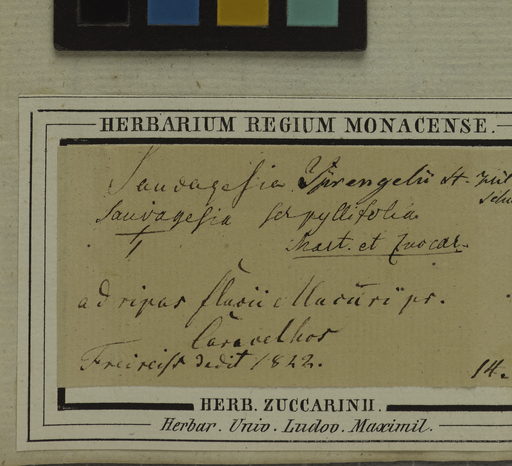 HERBARIUM REGIUM MONACENSE.
Sauvagesia Sprengelii St. Hil
Sauvagesia serpyllifolia
Mart. et Zuccar.
ad ripas fluvii Mucuri pr.
Caravelhos
Freireiss dedit 1822.
14.
HERB. ZUCCARINII.
Herbar. Univ. Ludov. Maximil.